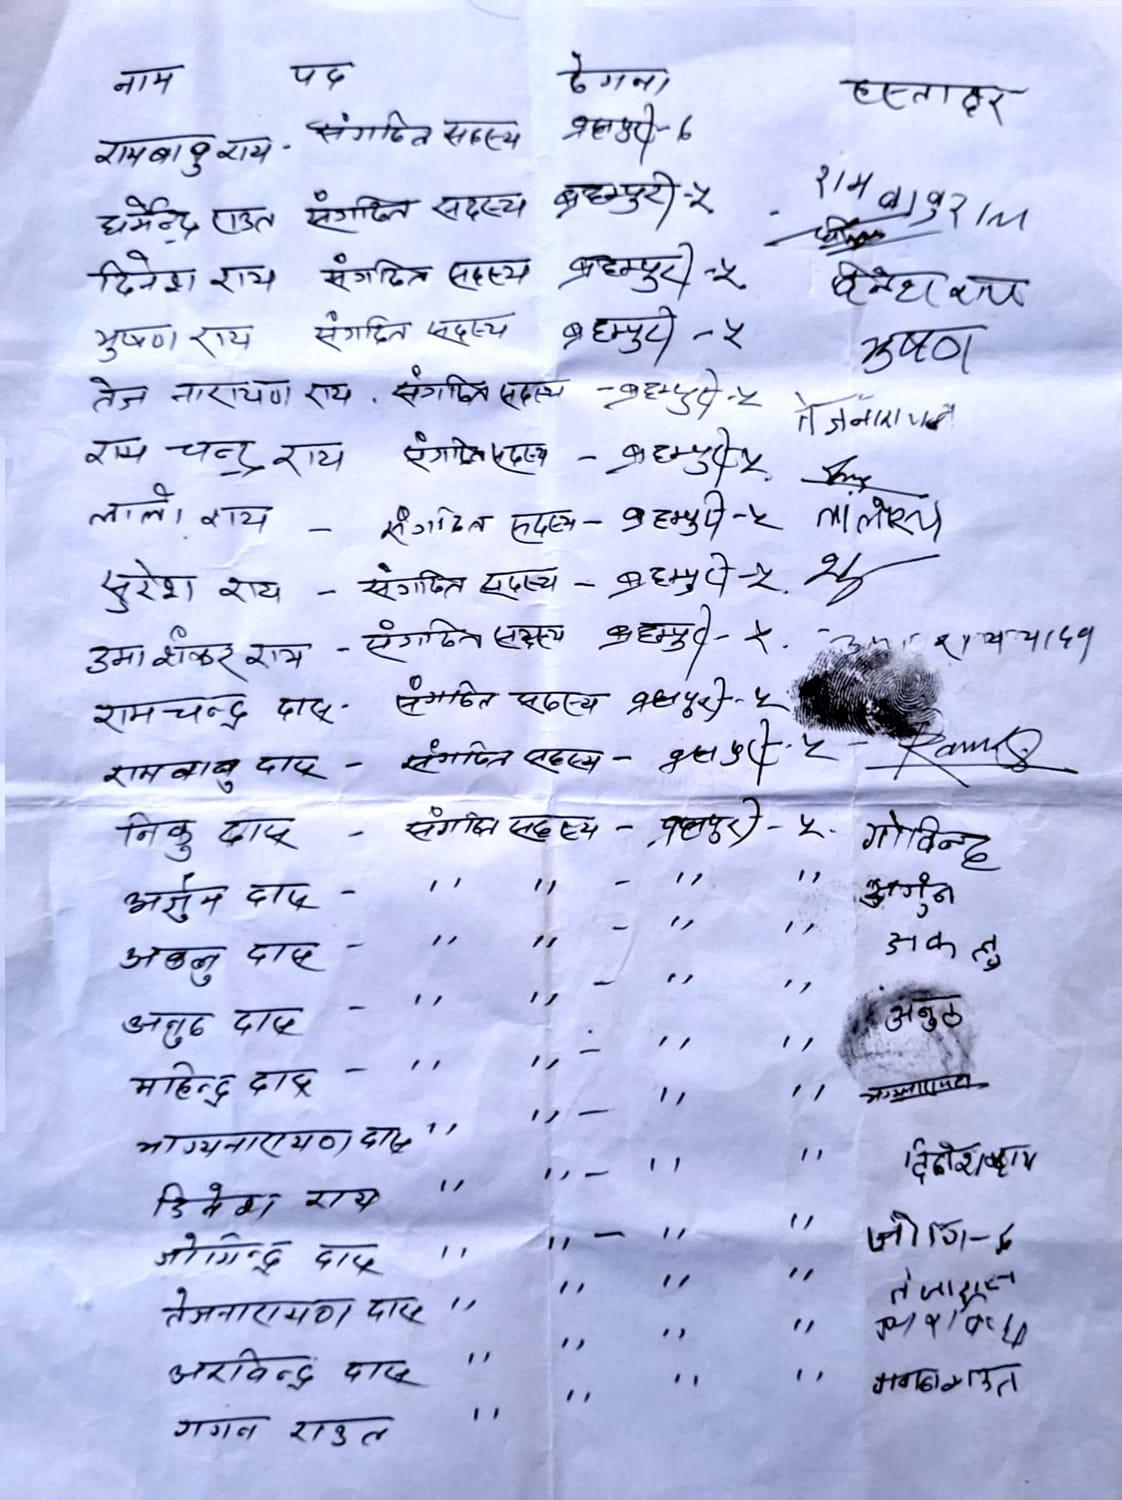 नाम पद ठेगना हस्ताक्षर
रामबाबु राय - संगठित सदस्य ब्रह्मपुरी-६
धर्मेन्द्र राउत संगठित सदस्य ब्रहम्पुरी-५ रामबाबुराम
दिनेश राय संगठित सदस्य ब्रहम्पुरी-५ दिनेश राय
भुषण राय संगठित सदस्य ब्रहम्पुरी-५ भुषण
तेज नारायण राय . संगठित सदस्य - ब्रहम्पुरी-५ तेजनारायण
राम चन्द्र राय संगठित सदस्य - ब्रहम्पुरी-५
लालो राय - संगठित सदस्य - ब्रहम्पुरी-५
सुरेश राय - संगठित सदस्य - ब्रहम्पुरी-५.
उमा शंकर राय - संगठित सदस्य ब्रहम्पुरी-५. उमा राय यादव
रामचन्द्र दास - संगठित सदस्य ब्रह्मपुरी-५
रामबाबु दास - संगठित सदस्य - ब्रह्मपुरी-५
निकु दास - संगठित सदस्य - ब्रह्मपुरी-५. गोविन्द
अर्जुन दास - '' '' - '' '' अर्जुन
अकलु दास - '' '' - '' '' अकलु
अनुठ दास - '' '' - '' '' अनुठ
महिन्द्र दास - '' '' - '' ''
भाग्यनारायण दास '' '' - '' ''
दिनेश राय '' '' - '' ''
जोगिन्द्र दास '' '' - '' ''
तेजनारायण दास '' '' '' ''
अरविन्द्र दास '' '' '' ''
गगन राउत '' '' '' '' गगनराउत